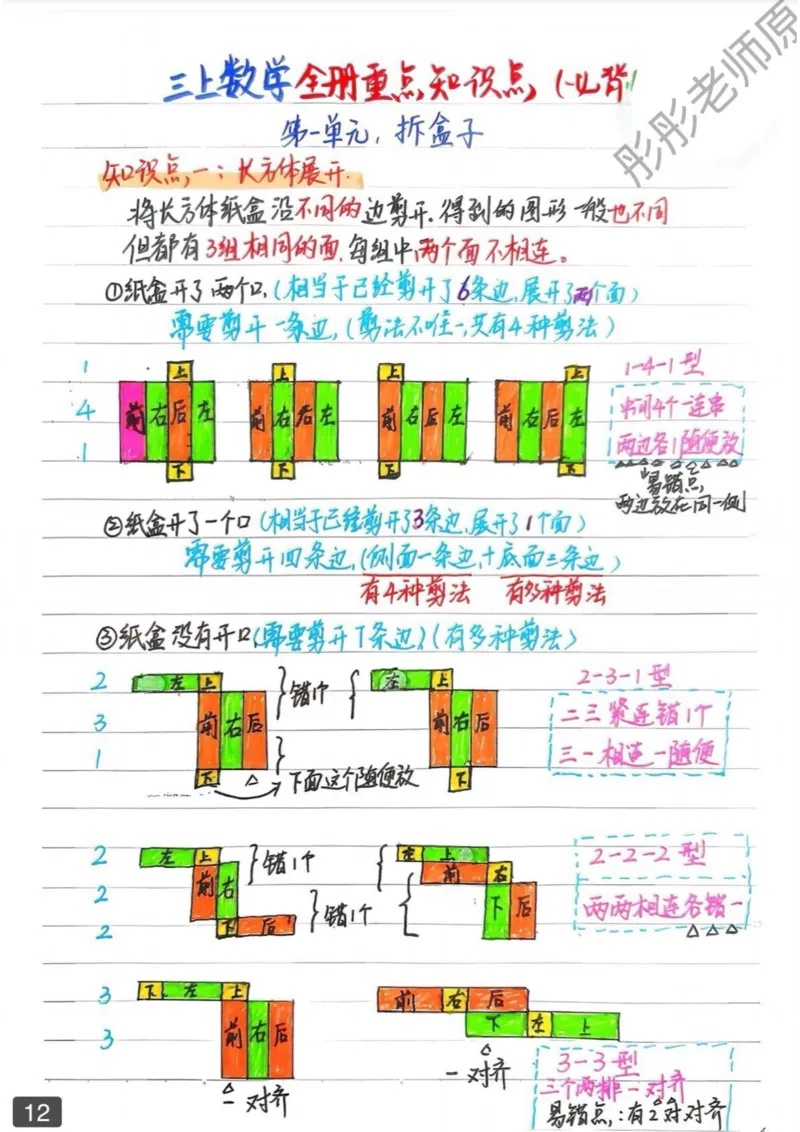 彤彤老师原
三上数学全册重点知识点(一)必背
第一单元,拆盒子
知识点一:长方体展开.
将长方体纸盒沿不同的边剪开.得到的图形一般也不同
但都有3组相同的面.每组中两个面不相连。
①纸盒开了两个口.(相当于已经剪开了6条边,展开了两个面)
需要剪开一条边,(剪法不唯一,共有4种剪法)
1 上 上 上 上 1-4-1型
4 前右后左 前右后左 前右后左 前右后左 中间4个一连串
1 下 下 下 下 两边各1随便放
易错点,
两边放在同一侧
②纸盒开了一个口(相当于已经剪开了3条边,展开了1个面)
需要剪开四条边,(侧面一条边,+底面三条边)
有4种剪法 有多种剪法
③纸盒没有开口,(需要剪开7条边)(有多种剪法)
2 左上 错1个 左上 2-3-1型
3 前右后 前右后 二三紧连错1个
1 下 下面这个随便放 下 三一相连一随便
2 左上 错1个 左上 2-2-2型
2 前右 前右
2 下后 错1个 下后 两两相连各错一
3 下左上 前右后
3 前右后 下左上
一对齐 一对齐 3-3型
三个两排一对齐
易错点:有2对对齐
12